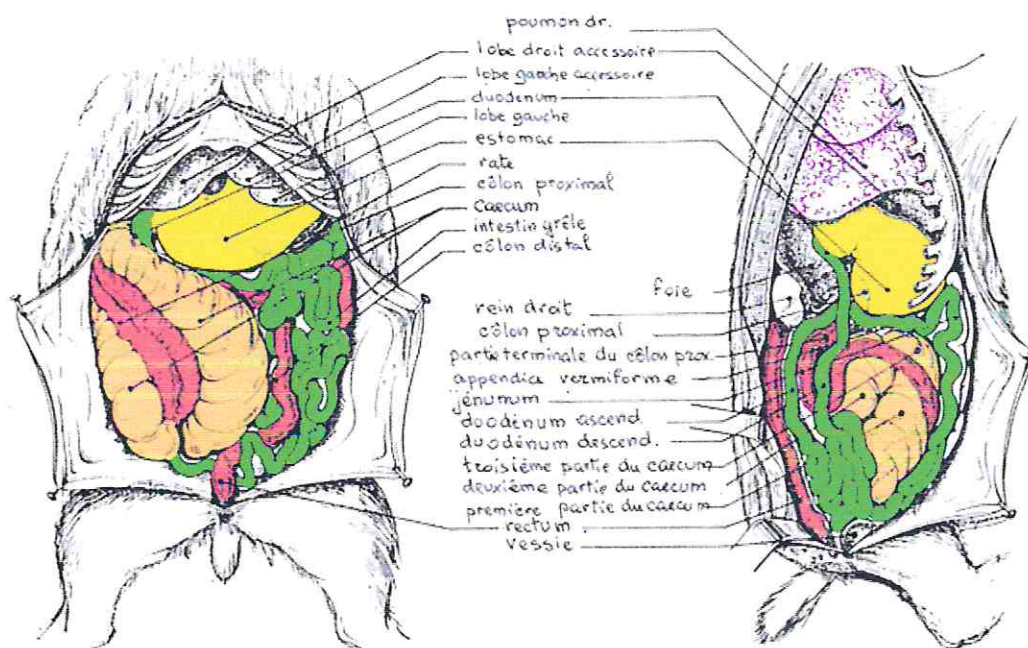 poumon dr.
lobe droit accessoire
lobe gauche accessoire
duodenum
lobe gauche
estomac
rate
côlon proximal
caecum
intestin grêle
côlon distal
foie
rein droit
côlon proximal
partie terminale du côlon prox.
appendice vermiforme
jénunum
duodénum ascend.
duodénum descend.
troisième partie du caecum
deuxième partie du caecum
première partie du caecum
rectum
vessie